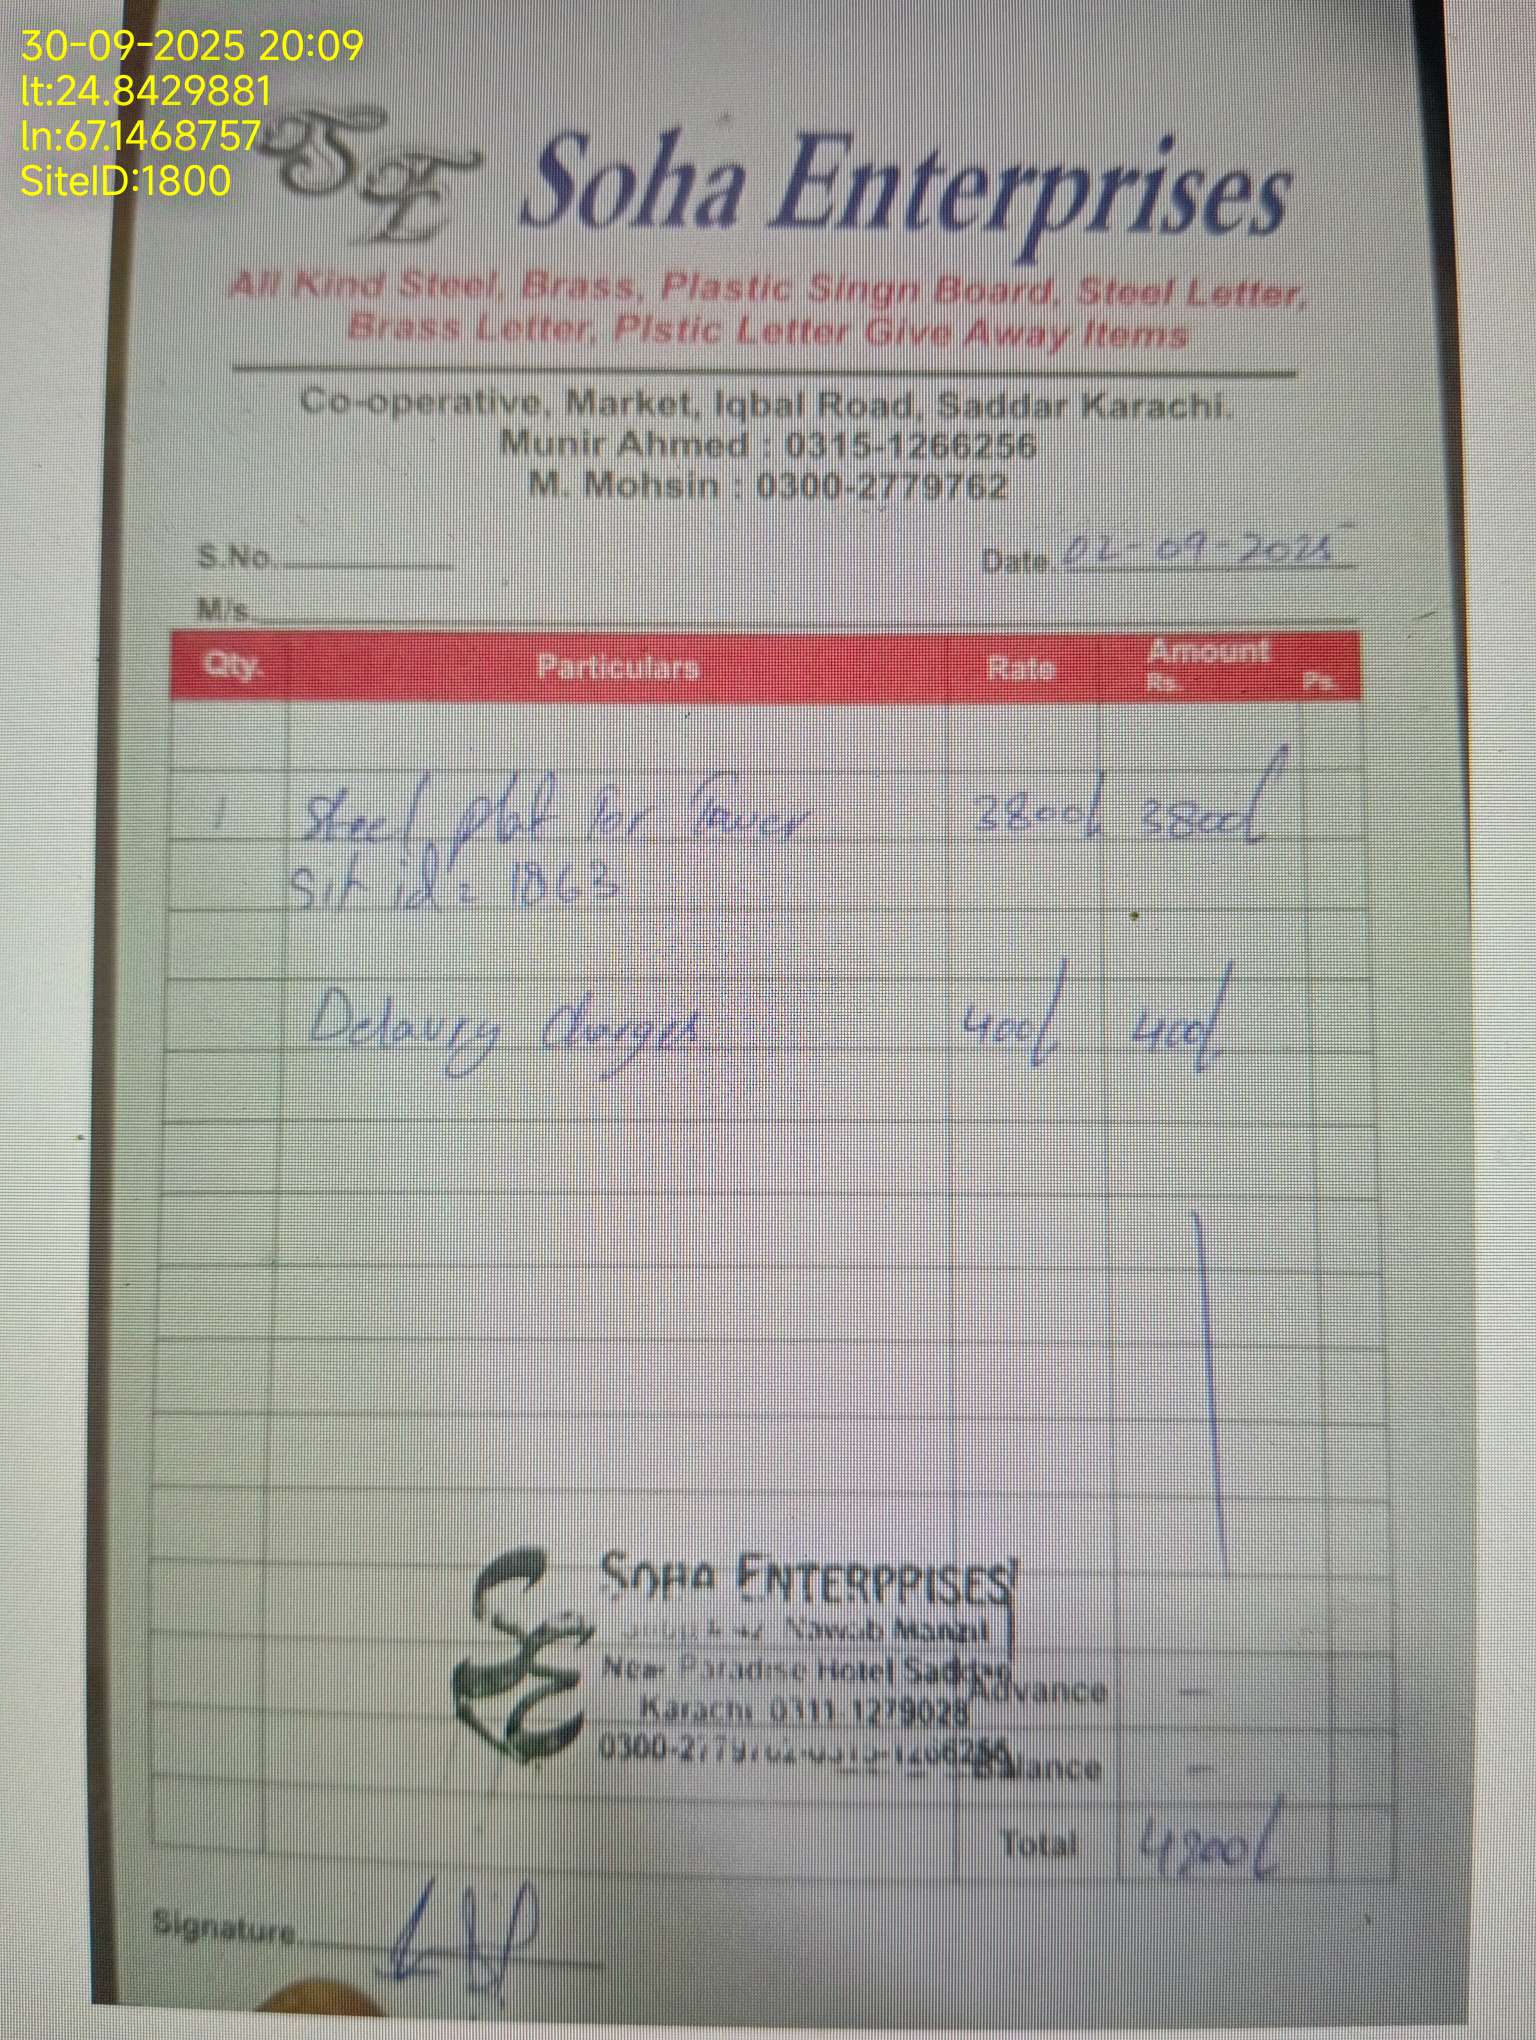 30-09-2025 20:09
lt:24.8429881
ln:67.1468757
SiteID:1800
SE Soha Enterprises
All Kind Steel, Brass, Plastic Singn Board, Steel Letter,
Brass Letter, Plstic Letter Give Away Items
Co-operative, Market, Iqbal Road, Saddar Karachi.
Munir Ahmed : 0315-1266256
M. Mohsin : 0300-2779762
S.No. Date. 02-09-2025
M/s.
Qty. Particulars Rate Amount
Rs. Ps.
1 Steel plat for Tower 3800/. 3800/
Sit id = 1863
Delavry Charges 400/. 400/.
SOHA ENTERPPISES
Nawab Manzil
Near Paradise Hotel Saddar
Advance —
Karachi 0311-1279028
0300-2779762-0315-1266256
Balance —
Total 4200/
Signature.